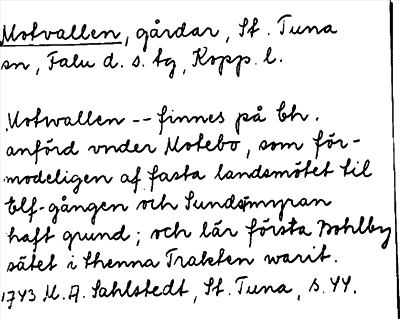 Motvallen, gårdar, St. Tuna
sn, Falu d. s. tg, Kopp. l.
Motwallen -- finnes på bh.
anförd vnder Motebo, som för-
modeligen af fasta landsmötet til
Elf-gången och Sundsmyran
haft grund; och lär första Bohlby
sätet i thenna Trakten warit.
1743 M. A. Sahlstedt, St. Tuna, s. 44.